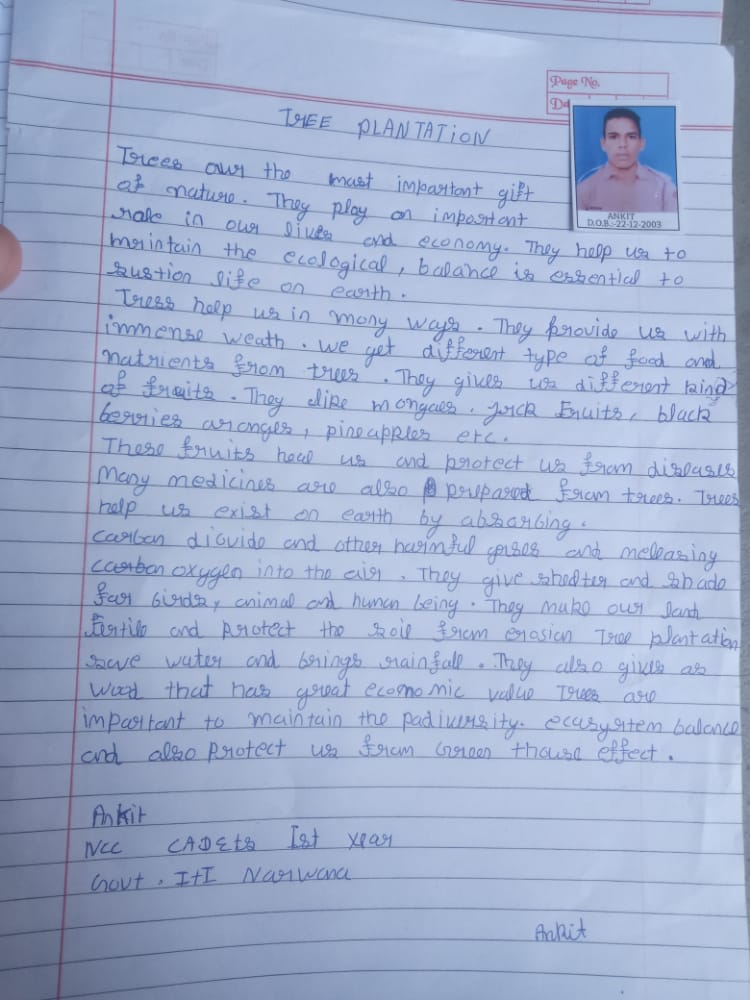 Page No.
Da
TREE PLANTATION
ANKIT
D.O.B.:-22-12-2003
Trees our the must impartant gift
of nature. They play an impartant
role in our lives and economy. They help us to
maintain the ecological, balance is essential to
sustion life on earth.
Tress help us in many ways. They provide us with
immense weath. we get different type of food and
nutrients from trees. They gives us different kind
of fruits. They like mongoes. jack Fruits, black
berries aronges, pineapples etc.
These fruits heal us and protect us from diseases
Many medicines are also prepared from trees. Trees
help us exist on earth by absorbing.
carban dioxide and other harmful gases and meleasing
carban oxygen into the air. They give shelter and shade
far birds, animal and human being. They make our land
fertile and protect the soil from erosian Tree plantation
save water and brings rainfall. They also gives as
wood that has great economic value Trees are
impartant to maintain the padiversity. ecasysrtem balance
and also protect us from Green thouse effect.
Ankit
NCC CADEts Ist year
Govt. ItI Narwana
Ankit